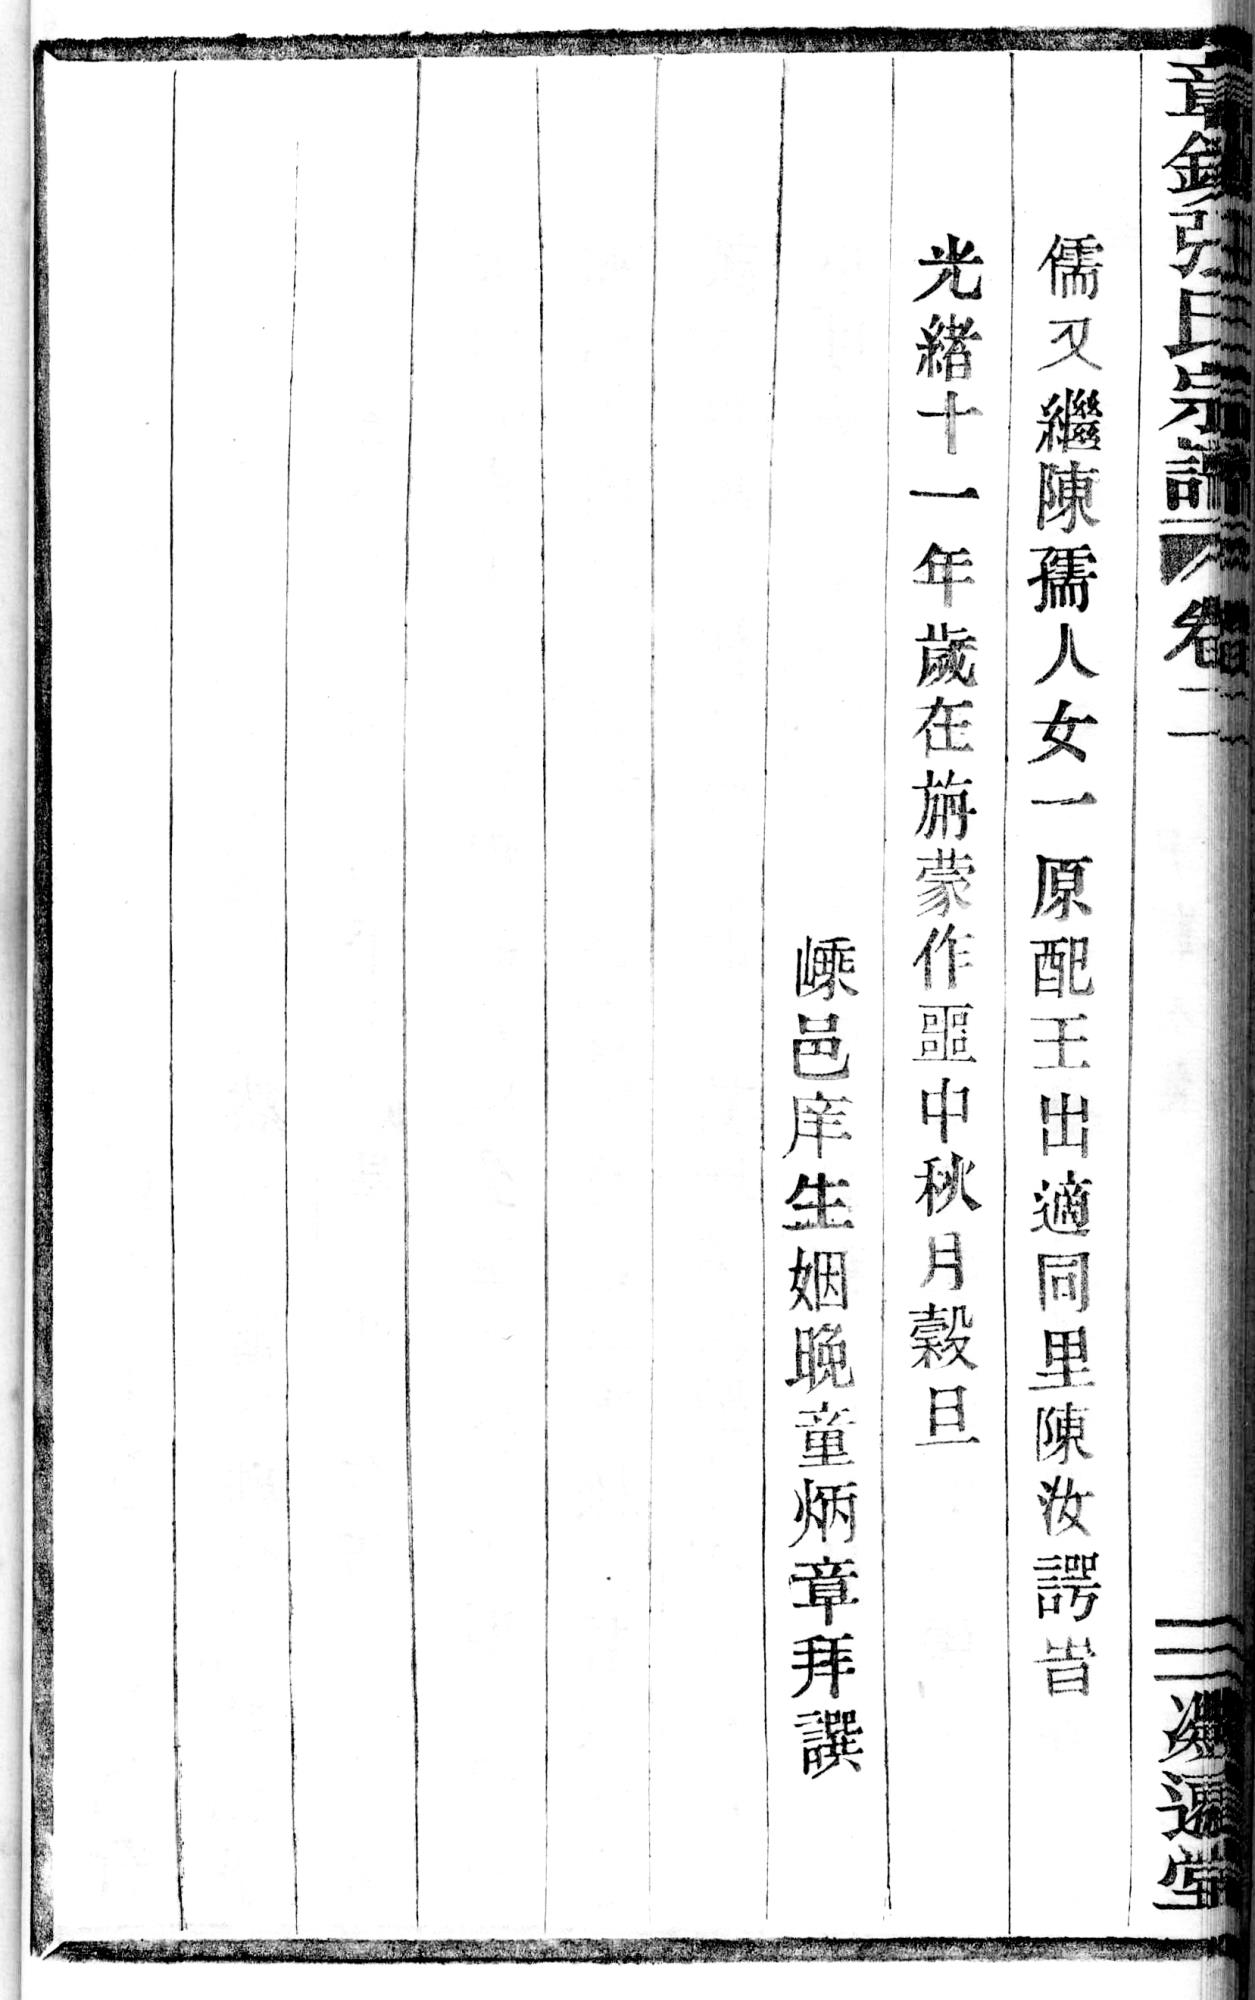 章鎮張氏宗譜 卷二
儒又繼陳孺人女一原配王出適同里陳汝諤旹
光緒十一年歲在旃蒙作噩中秋月穀旦
嵊邑庠生姻晚童炳章拜譔
堂